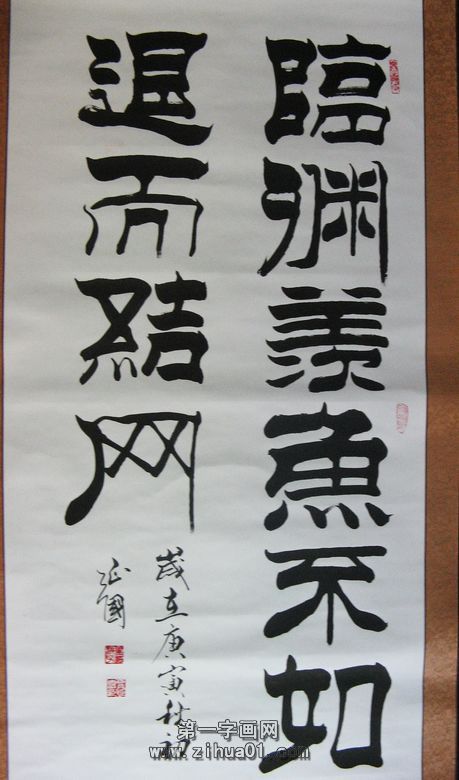 臨渊羨魚不如
退而結网
歲在庚寅秋月
第一字画网
www.zihua01.com